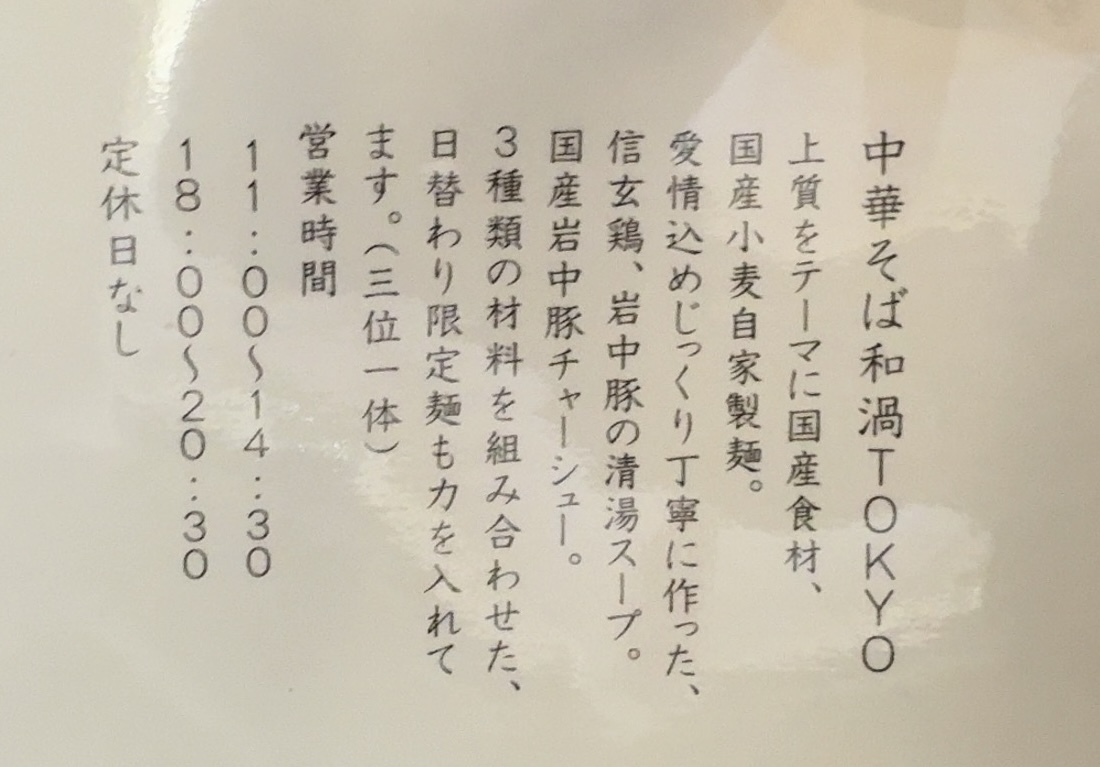 中華そば和渦TOKYO
上質をテーマに国産食材、
国産小麦自家製麺。
愛情込めじっくり丁寧に作った、
信玄鶏、岩中豚の清湯スープ。
国産岩中豚チャーシュー。
3種類の材料を組み合わせた、
日替わり限定麺も力を入れて
ます。(三位一体)
営業時間
11:00〜14:30
18:00〜20:30
定休日なし